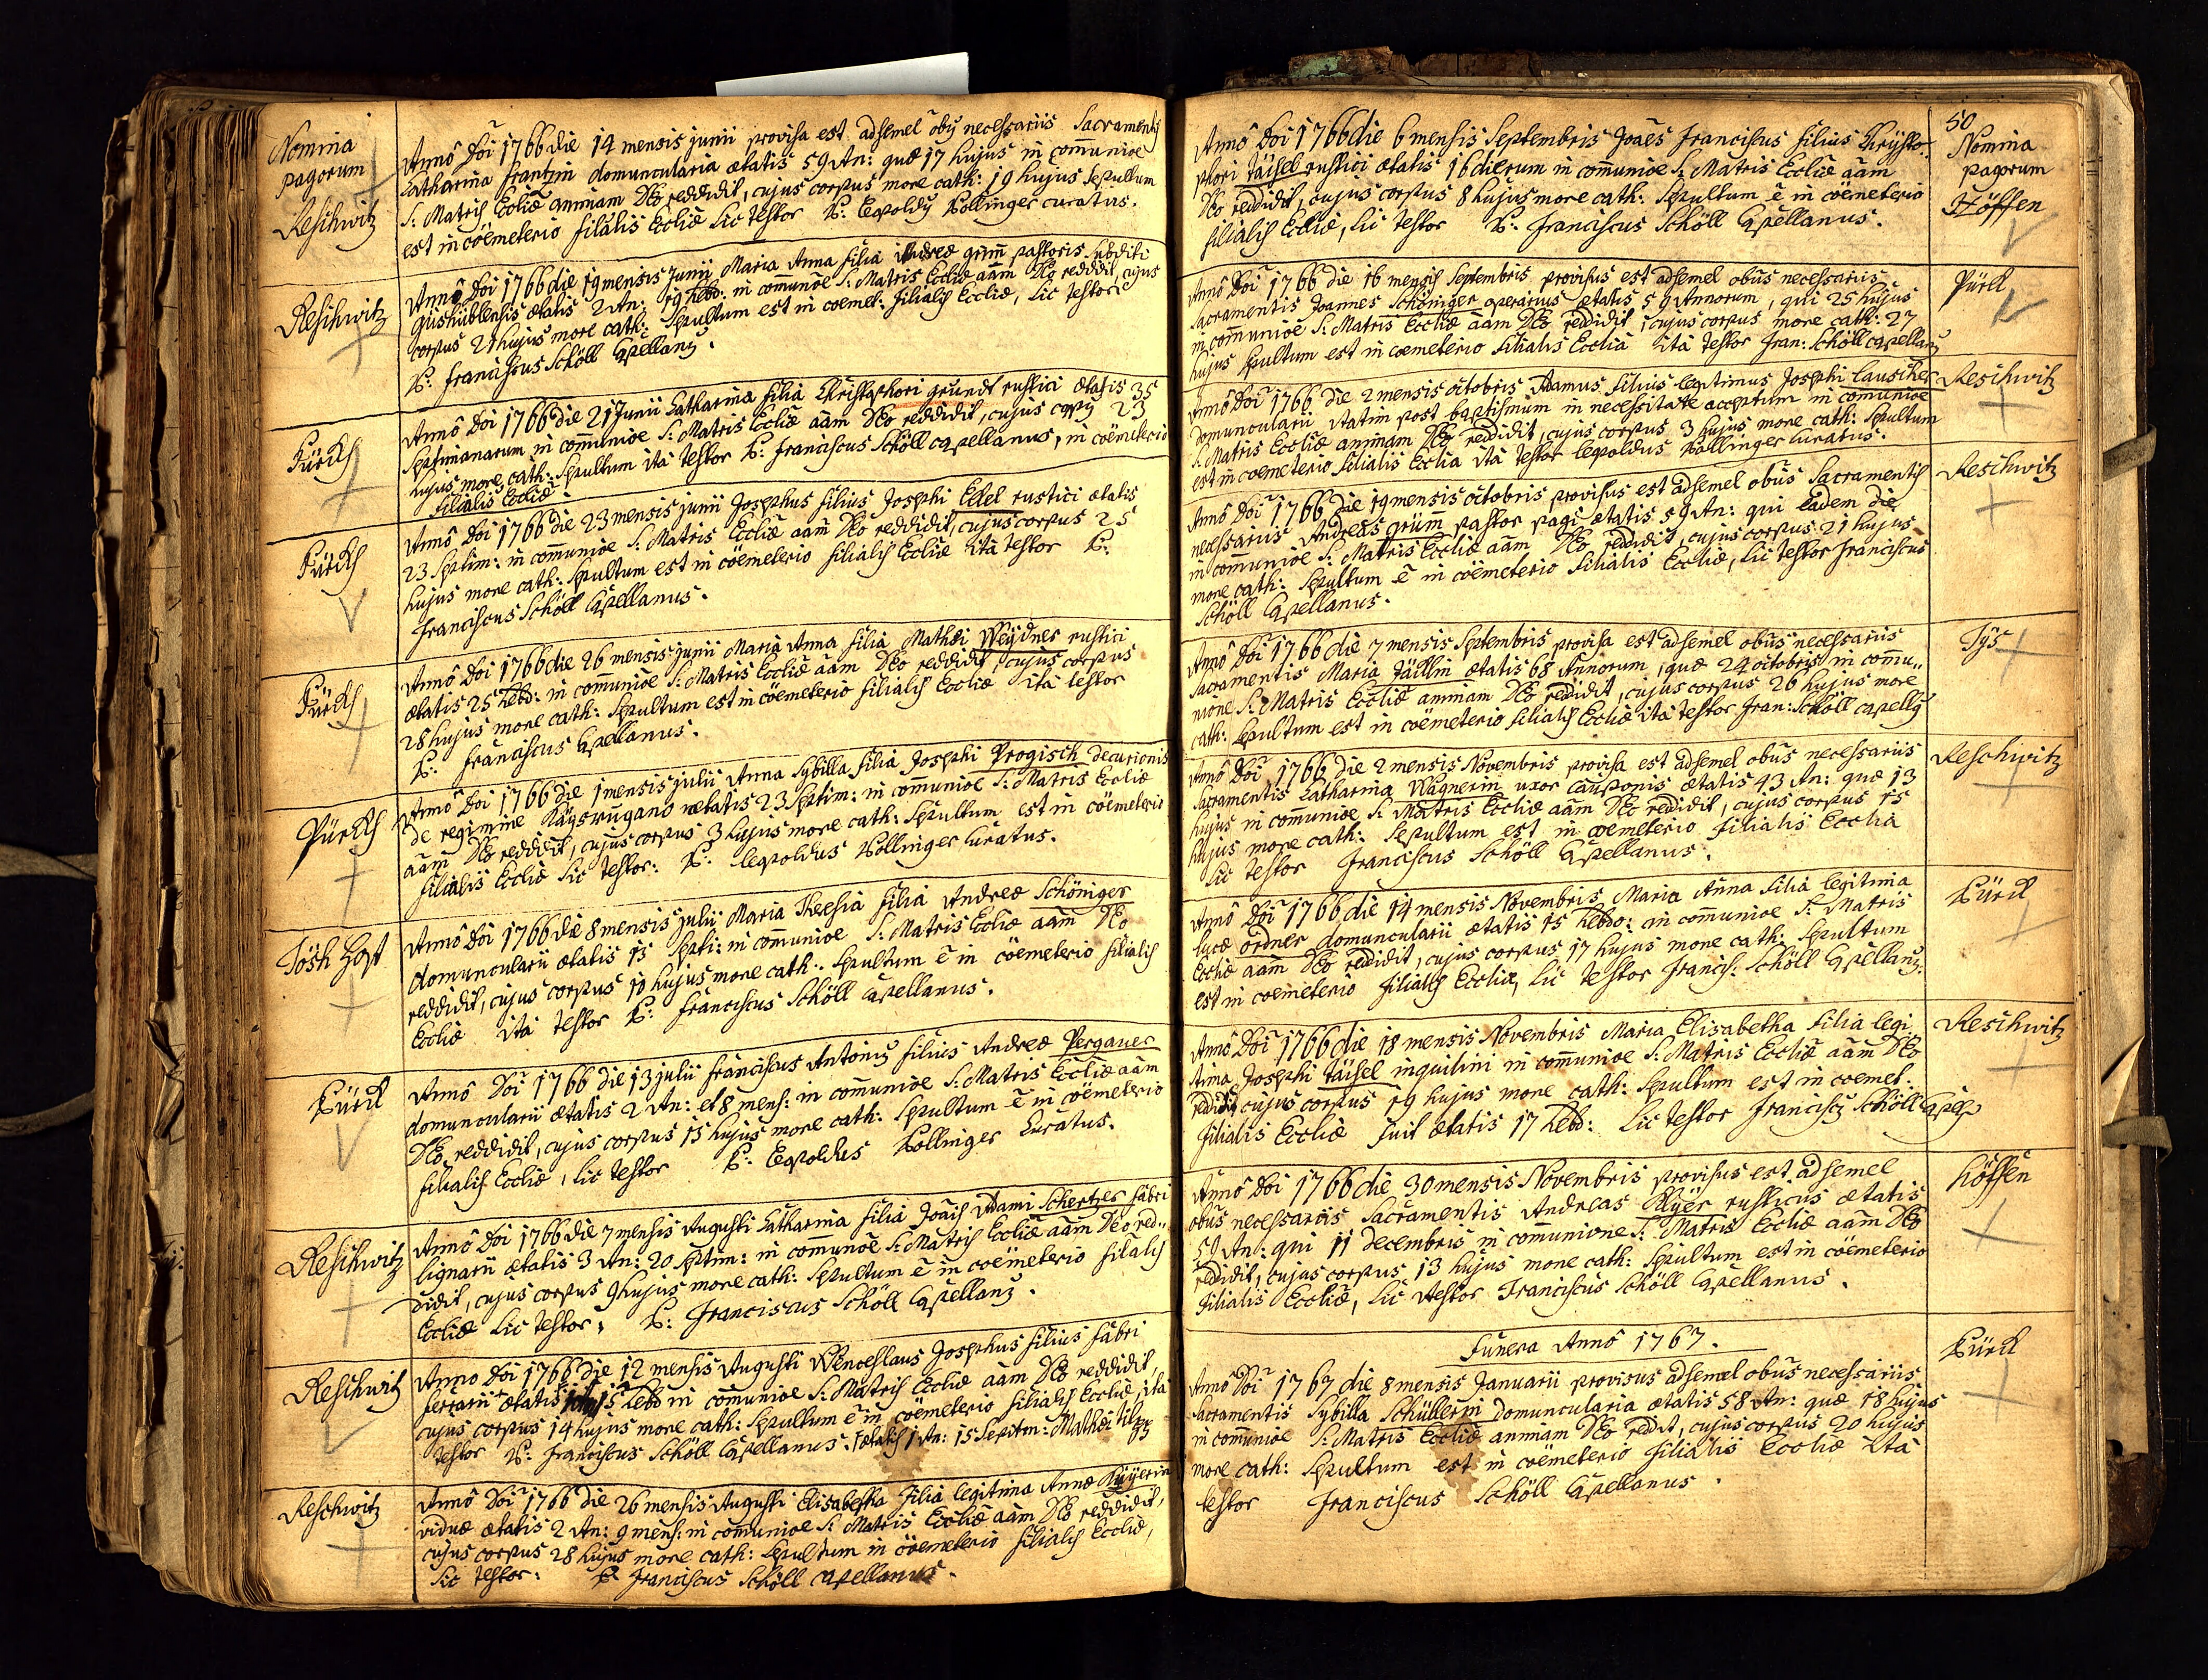 Nomina
pagorum
Reschwitz
Annô Doi 1766 die 14 mensis junii provisa est adsemel obij necessariis Sacramentis
Catharina Frantzin domuncularia ætatis 59 An: quæ 17 hujus in com̄unioe
S: Matris Eccliæ animam Deo reddidit, cujus corpus more cath: 19 hujus Sepultum
est in cöemeterio filialis Eccliæ Sic testor P: Lepoldy Bollinger curatus.
Reschwitz
Annô Doi 1766 die 19 mensis Junii Maria Anna filia Andreæ grim̄ pastoris Subditi
gieshüblensis ætatis 2 An: 19 hebd: in com̄unōe S: Matris Eccliæ aām Deo reddidit, cujus
corpus 21 hujus more cath: Sepultum est in coemet: filialis Eccliæ, Sic testor
P: Franciscus Schöll Capellany.
Pürckh
Annô Doi 1766 die 21 Junii Catharina filia Christophori gründt rustici ætatis 35
Septimanarum in com̄unioe S: Matris Eccliæ aām Deo reddidit, cujus corpy 23
hujus more cath: Sepultum ità testor P: Franciscus Schöll capellanus, in cöemeterio
filialis Eccliæ.
Pürckh
Annô Doi 1766 die 23 mensis junii Josephus filius Josephi Edel rustici ætatis
23 Septim: in com̄unioe S: Matris Eccliæ aām Deo reddidit, cujus corpus 25
hujus more cath: Sepultum est in cöemeterio filialis Eccliæ ità testor P:
Franciscus Schöll Capellanus.
Pürckh
Annô Doi 1766 die 26 mensis junii Maria Anna filia Mathæi Weÿdner rustici
ætatis 25 hebd: in com̄unioe S: Matris Eccliæ aām Deo reddidit cujus corpus
28 hujus more cath: Sepultum est in cöemeterio filialis Eccliæ ità testor
P: Franciscus Capellanus.
Pürckh
Annô Doi 1766 die 1 mensis julii Anna Sybilla filia Josephi Progisch decurionis
de regimine ætatis 23 Septim: in com̄unioe S: Matris Eccliæ
aām Deo reddidit, cujus corpus 3 hujus more cath: Sepultum est in cöemeterio
filialis Eccliæ Sic testor: P: Lepoldus Bollinger Curatus.
Annô Doi 1766 die 8 mensis julii Maria Theresia filia Andreæ Schöniger
domuncularii ætatis 15 Septi: in com̄unioe S: Matris Eccliæ aām Deo
reddidit, cujus corpus 10 hujus more cath: Sepultum ē in cöemeterio filialis
Eccliæ ità testor P: Franciscus Schöll Capellanus.
Pürck
Annô Doi 1766 die 13 julii Franciscus Antoniy filius Andreæ Perganer
domuncularii ætatis 2 An: et 8 mens: in com̄unioe S: Matris Eccliæ aām
Deo reddidit, cujus corpus 15 hujus more cath: Sepultum ē in cöemeterio
filialis Eccliæ, Sic testor P: Lepoldus Bollinger Curatus.
Reschwitz
Annô Doi 1766 die 7 mensis Augusti Catharina filia Joāis Adami Schertzer fabri
lignarii ætatis 3 An: 20 Septim: in com̄unōe S: Matris Eccliæ aām Deo red„
didit, cujus corpus 9 hujus more cath: Sepultum ē in coëmeterio filialis
Eccliæ Sic testor, P: Franciscus Schöll Capellany.
Reschwitz
Anno Doi 1766 die 12 mensis Augusti Wenceslaus Josephus filius fabri
ferrarii ætatis 15 hebd in com̄unioe S: Matris Eccliæ aām Deo reddidit,
cujus corpus 14 hujus more cath: Sepultum ē in cöemeterio filialis Eccliæ, ità
testor P: Franciscus Schöll Capellanus. ætatis 1 An: 15 Septim: Mathæi
Reschwitz
Annô Doi 1766 die 26 mensis Augusti Elisabetha filia legitima Annæ
viduæ ætatis 2 An: 9 mens: in com̄unioe S: Matris Eccliæ aām Deo reddidit,
cujus corpus 28 hujus more cath: Sepultum in cöemeterio filialis Eccliæ,
Sic testor: P Franciscus Schöll Capellanus.
50
Nomina
pagorum
Höffen
Annô Doi 1766 die 6 mensis Septembris Joāes Franciscus filius Chrÿsto„
phori Täÿsel rustici ætatis 16 dierum in com̄unioe S: Matris Eccliæ aām
Deo reddidit, cujus corpus 8 hujus more cath: Sepultum ē in cöemeterio
filialis Eccliæ, Sic testor P: Franciscus Schöll Capellanus.
Pürck
Annô Doi 1766 die 16 mensis Septembris provisus est adsemel obūs necessariis
Sacramentis Joannes Schöniger operarius ætatis 59 Annorum, qui 25 hujus
in com̄unioe S: Matris Eccliæ aām Deo reddidit, cujus corpus more cath: 27
hujus Sepultum est in coemeterio filialis Eccliâ ità testor Fran: Schöll capellany
Reschwitz
Annô Doi 1766 die 2 mensis octobris Adamus filius legitimus Josephi Lauscher
Domuncularii statim post baptismum in necessitate acceptum in com̄unioe
S: Matris Eccliæ animam Deo reddidit, cujus corpus 3 hujus more cath: Sepultum
est in coemeterio filialis Ecclia ità testor lepoldus Bollinger Curatus.
Reschwitz
Annô Doi 1766 die 19 mensis octobris provisus est adsemel obūs Sacramentis
necessariis Andreas grüm̄ pastor pagi ætatis 59 An: qui eadem die
in com̄unioe S: Matris Eccliæ aām Deo reddidit, cujus corpus 21 hujus
more cath: Sepultum ē in cöemeterio filialis Eccliæ, Sic testor Franciscus
Schöll Capellanus.
Tÿs
Annô Doi 1766 die 7 mensis Septembris provisa est adsemel obūs necessariis
Sacramentis Maria Täillin ætatis 68 Annorum, quæ 24 octobris in com̄u„
nione S: Matris Eccliæ animam Deo reddidit, cujus corpus 26 hujus more
cath: Sepultum est in cöemeterio filialis Eccliæ ità testor Fran: Schöll capelly
Reschwitz
Annô Doi 1766 die 2 mensis Novembris provisa est adsemel obūs necessariis
Sacramentis Catharina Wagnerin uxor cauponis ætatis 43 An: quæ 13
hujus in com̄unioe S: Matris Eccliæ aām Deo reddidit, cujus corpus 15
hujus more cath: Sepultum est in coemeterio filialis Ecclia
Sic testor Franciscus Schöll Capellanus.
Pürck
Annô Doi 1766 die 14 mensis Novembris Maria Anna filia legitima
Lucæ ordner domuncularii ætatis 15 hebdo: in com̄unioe S: Matris
Eccliæ aām Deo reddidit, cujus corpus 17 hujus more cath: Sepultum
est in coemeterio filialis Eccliæ, Sic testor Francis: Schöll Capellany.
Reschwitz
Annô Doi 1766 die 18 mensis Novembris Maria Elisabetha filia legi„
tima Josephi Täÿsel inquilini in com̄unioe S: Matris Eccliæ aām Deo
reddidit cujus corpus 19 hujus more cath: Sepultum est in coemet.
filialis Eccliæ fuit ætatis 17 hebd: Sic testor Franciscy Schöll Capel
Höffen
Annô Doi 1766 die 30 mensis Novembris provisus est adsemel
obūs necessariis Sacramentis Andreas rusticus ætatis
59 An: qui 11 decembris in com̄unione S: Matris Eccliæ aām Deo
reddidit, cujus corpus 13 hujus more cath: Sepultum est in cöemeterio
filialis Eccliæ, Sic testor Franciscus Schöll Capellanus.
Funera Annô 1767.
Pürck
Annô Doi 1767 die 8 mensis Januarii provisus adsemel obūs necessariis
Sacramentis Sybilla Schüllerin domuncularia ætatis 58 An: quæ 18 hujus
in com̄unioe S: Matris Eccliæ animam Deo reddit, cujus corpus 20 hujus
more cath: Sepultum est in coëmeterio filialis Eccliæ ità
testor Franciscus Schöll Capellanus.